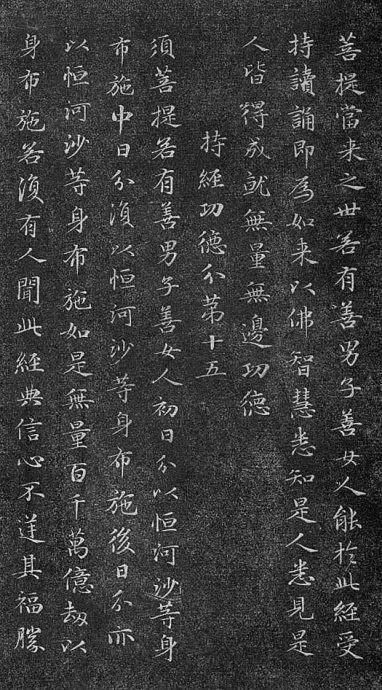 菩提當来之世若有善男子善女人能於此經受
持讀誦即為如来以佛智慧悉知是人悉見是
人皆得成就無量無邊功德
持經功德分苐十五
須菩提若有善男子善女人初日分以恒河沙等身
布施中日分復以恒河沙等身布施後日分亦
以恒河沙等身布施如是無量百千萬億劫以
身布施若復有人聞此經典信心不逆其福勝